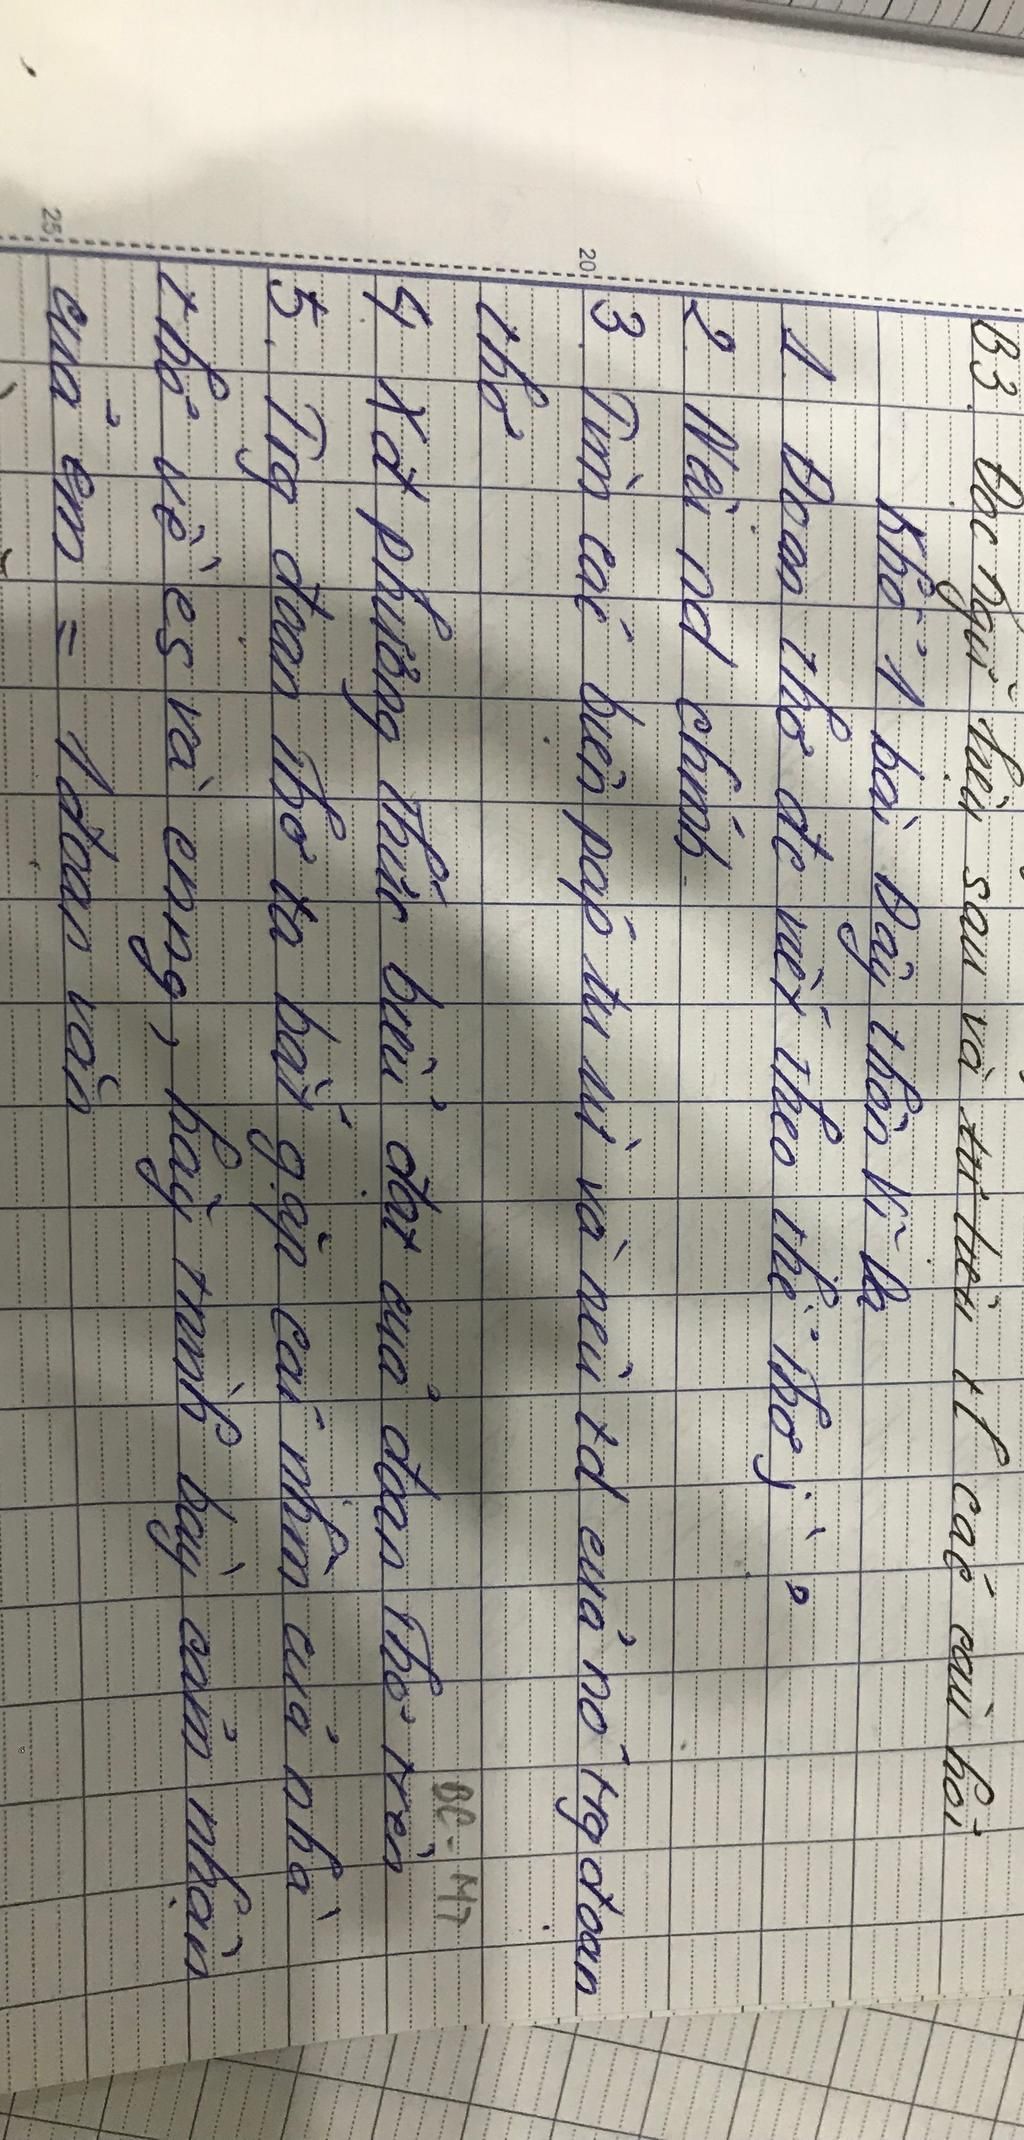 B3. Đọc ngữ liệu sau và trả lời tl các câu hỏi
Khổ 1 bài Đây thôn Vĩ Dạ
1. Đoạn thơ đc viết theo thể thơ j̀ ?
2. Nêu nd chính
3. Tìm các biện páp tu từ và nêu td của nó trg đoạn
thơ
4. Xđ phương thức biểu đạt của đoạn thơ trên
BC - MT
5. Trg đoạn thơ ta bắt gặp cái nhìn của nhà
thơ về cs và cng, hãy trình bày cảm nhận
của em = 1 đoạn văn
20
25